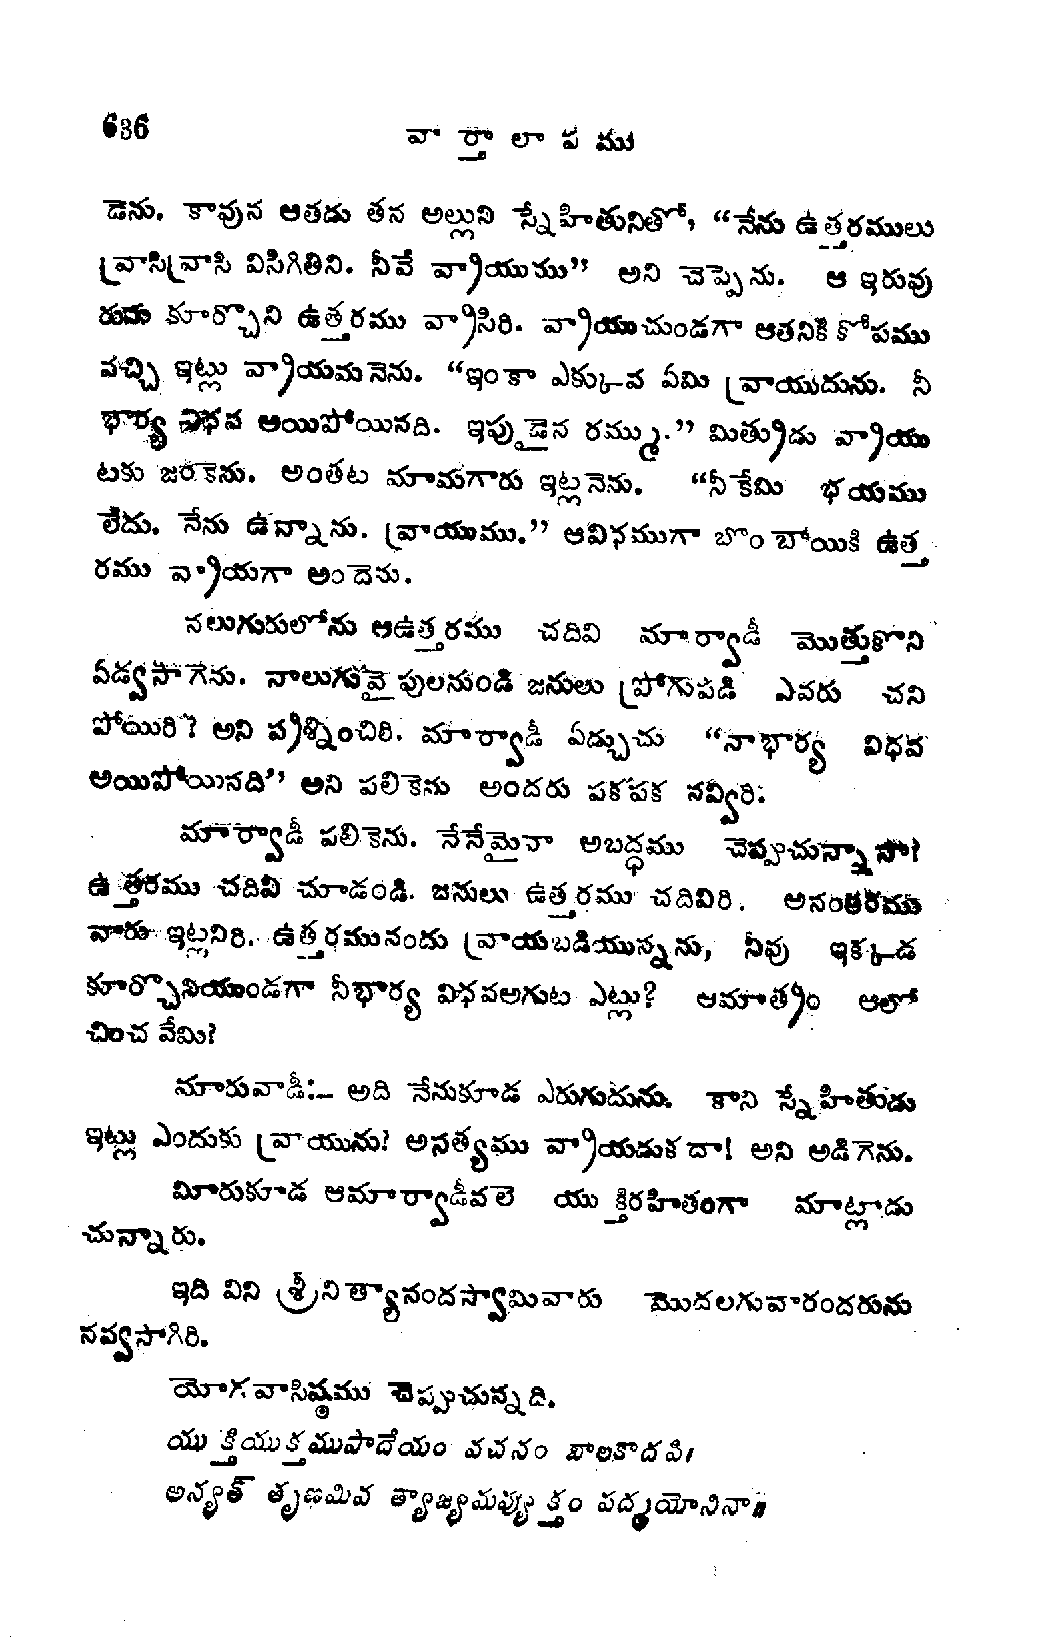 636
వా ర్తా లా ప ము
డెను. కావున ఆతడు తన అల్లుని స్నేహితునితో, “నేను ఉత్తరములు
వ్రాసివ్రాసి విసిగితిని. నీవే వ్రాయుము” అని చెప్పెను. ఆ ఇరువు
రును కూర్చొని ఉత్తరము వ్రాసిరి. వ్రాయుచుండగా ఆతనికి కోపము
వచ్చి ఇట్లు వ్రాయమనెను. “ఇంకా ఎక్కువ ఏమి వ్రాయుదును. నీ
భార్య విధవ ఆయిపోయినది. ఇప్పుడైన రమ్ము.” మిత్రుడు వ్రాయు
టకు జరకెను. అంతట మామగారు ఇట్లనెను. “నీకేమి భయము
లేదు. నేను ఉన్నాను. వ్రాయుము.” ఆవిధముగా బొంబోయికి ఉత్త
రము వ్రాయగా అందెను.
నలుగురులోను ఆఉత్తరము చదివి మార్వాడీ మొత్తుకొని
ఏడ్వసాగెను. నాలుగువైపులనుండి జనులు ప్రోగుపడి ఎవరు చని
పోయిరి? అని ప్రశ్నించిరి. మార్వాడీ ఏడ్చుచు “నాభార్య విధవ
అయిపోయినది” అని పలికెను అందరు పకపక నవ్విరి.
మార్వాడీ పలికెను. నేనేమైనా అబద్ధము చెప్పుచున్నానా?
ఉత్తరము చదివి చూడండి. జనులు ఉత్తరము చదివిరి. అనంతరము
వారు ఇట్లనిరి. ఉత్తరమునందు వ్రాయబడియున్నను, నీవు ఇక్కడ
కూర్చొనియుండగా నీభార్య విధవఅగుట ఎట్లు? ఆమాత్రం ఆలో
చించ వేమి?
మారువాడీ:- అది నేనుకూడ ఎరుగుదును. కాని స్నేహితుడు
ఇట్లు ఎందుకు వ్రాయును? అసత్యము వ్రాయడుకదా! అని అడిగెను.
మీరుకూడ ఆమార్వాడీవలె యుక్తిరహితంగా మాట్లాడు
చున్నారు.
ఇది విని శ్రీనిత్యానందస్వామివారు మొదలగువారందరును
నవ్వసాగిరి.
యోగవాసిష్ఠము చెప్పుచున్నది.
యుక్తియుక్తముపాదేయం వచనం బాలకాదపి।
అన్యత్ తృణమివ త్యాజ్యమప్యుక్తం పద్మయోనినా॥